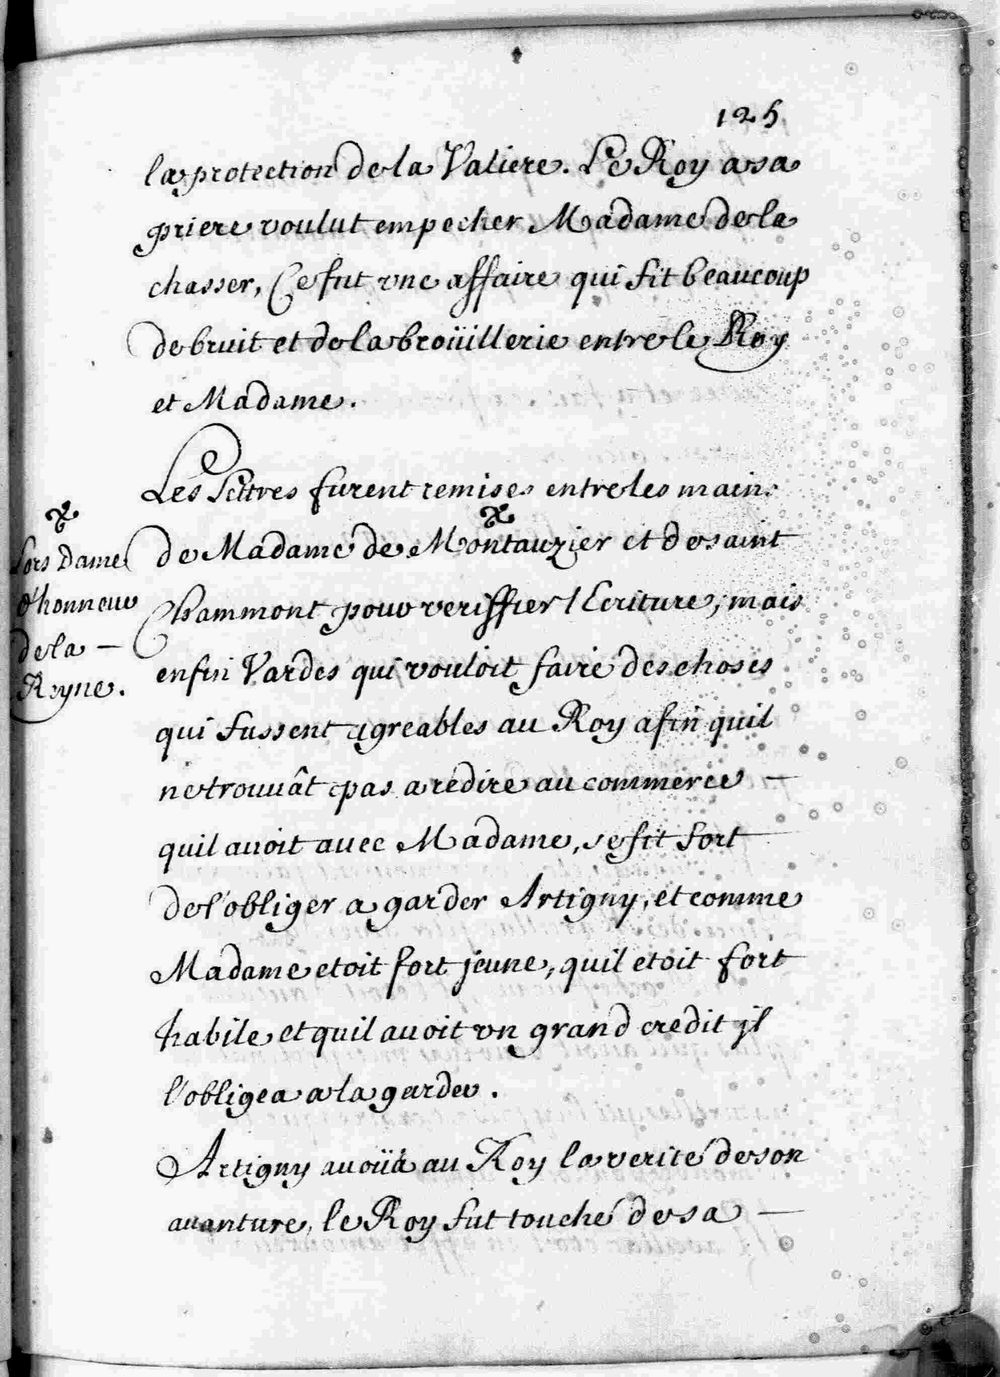 125
la protection de la Valiere. Le Roy a sa
priere voulut empecher Madame de la
chasser, Ce fut vne affaire qui fit beaucoup
de bruit et de la broüillerie entre le Roy
et Madame.
Les Lettres furent remises entre les mains
de Madame de Montauzier et de saint
Chammont pour veriffier l'Ecriture; mais
enfin Vardes qui vouloit faire des choses
qui fussent agreables au Roy afin quil
ne trouuât pas a redire au commerce —
quil auoit auec Madame, se fit fort
de l'obliger a garder Artigny, et comme
Madame etoit fort jeune, quil etoit fort
habile et quil auoit vn grand credit jl
l'obligea a la garder.
Artigny auoüa au Roy la verité de son
auanture, le Roy fut touché de sa —
Lors Dame
d'honneur
de la —
Reyne.